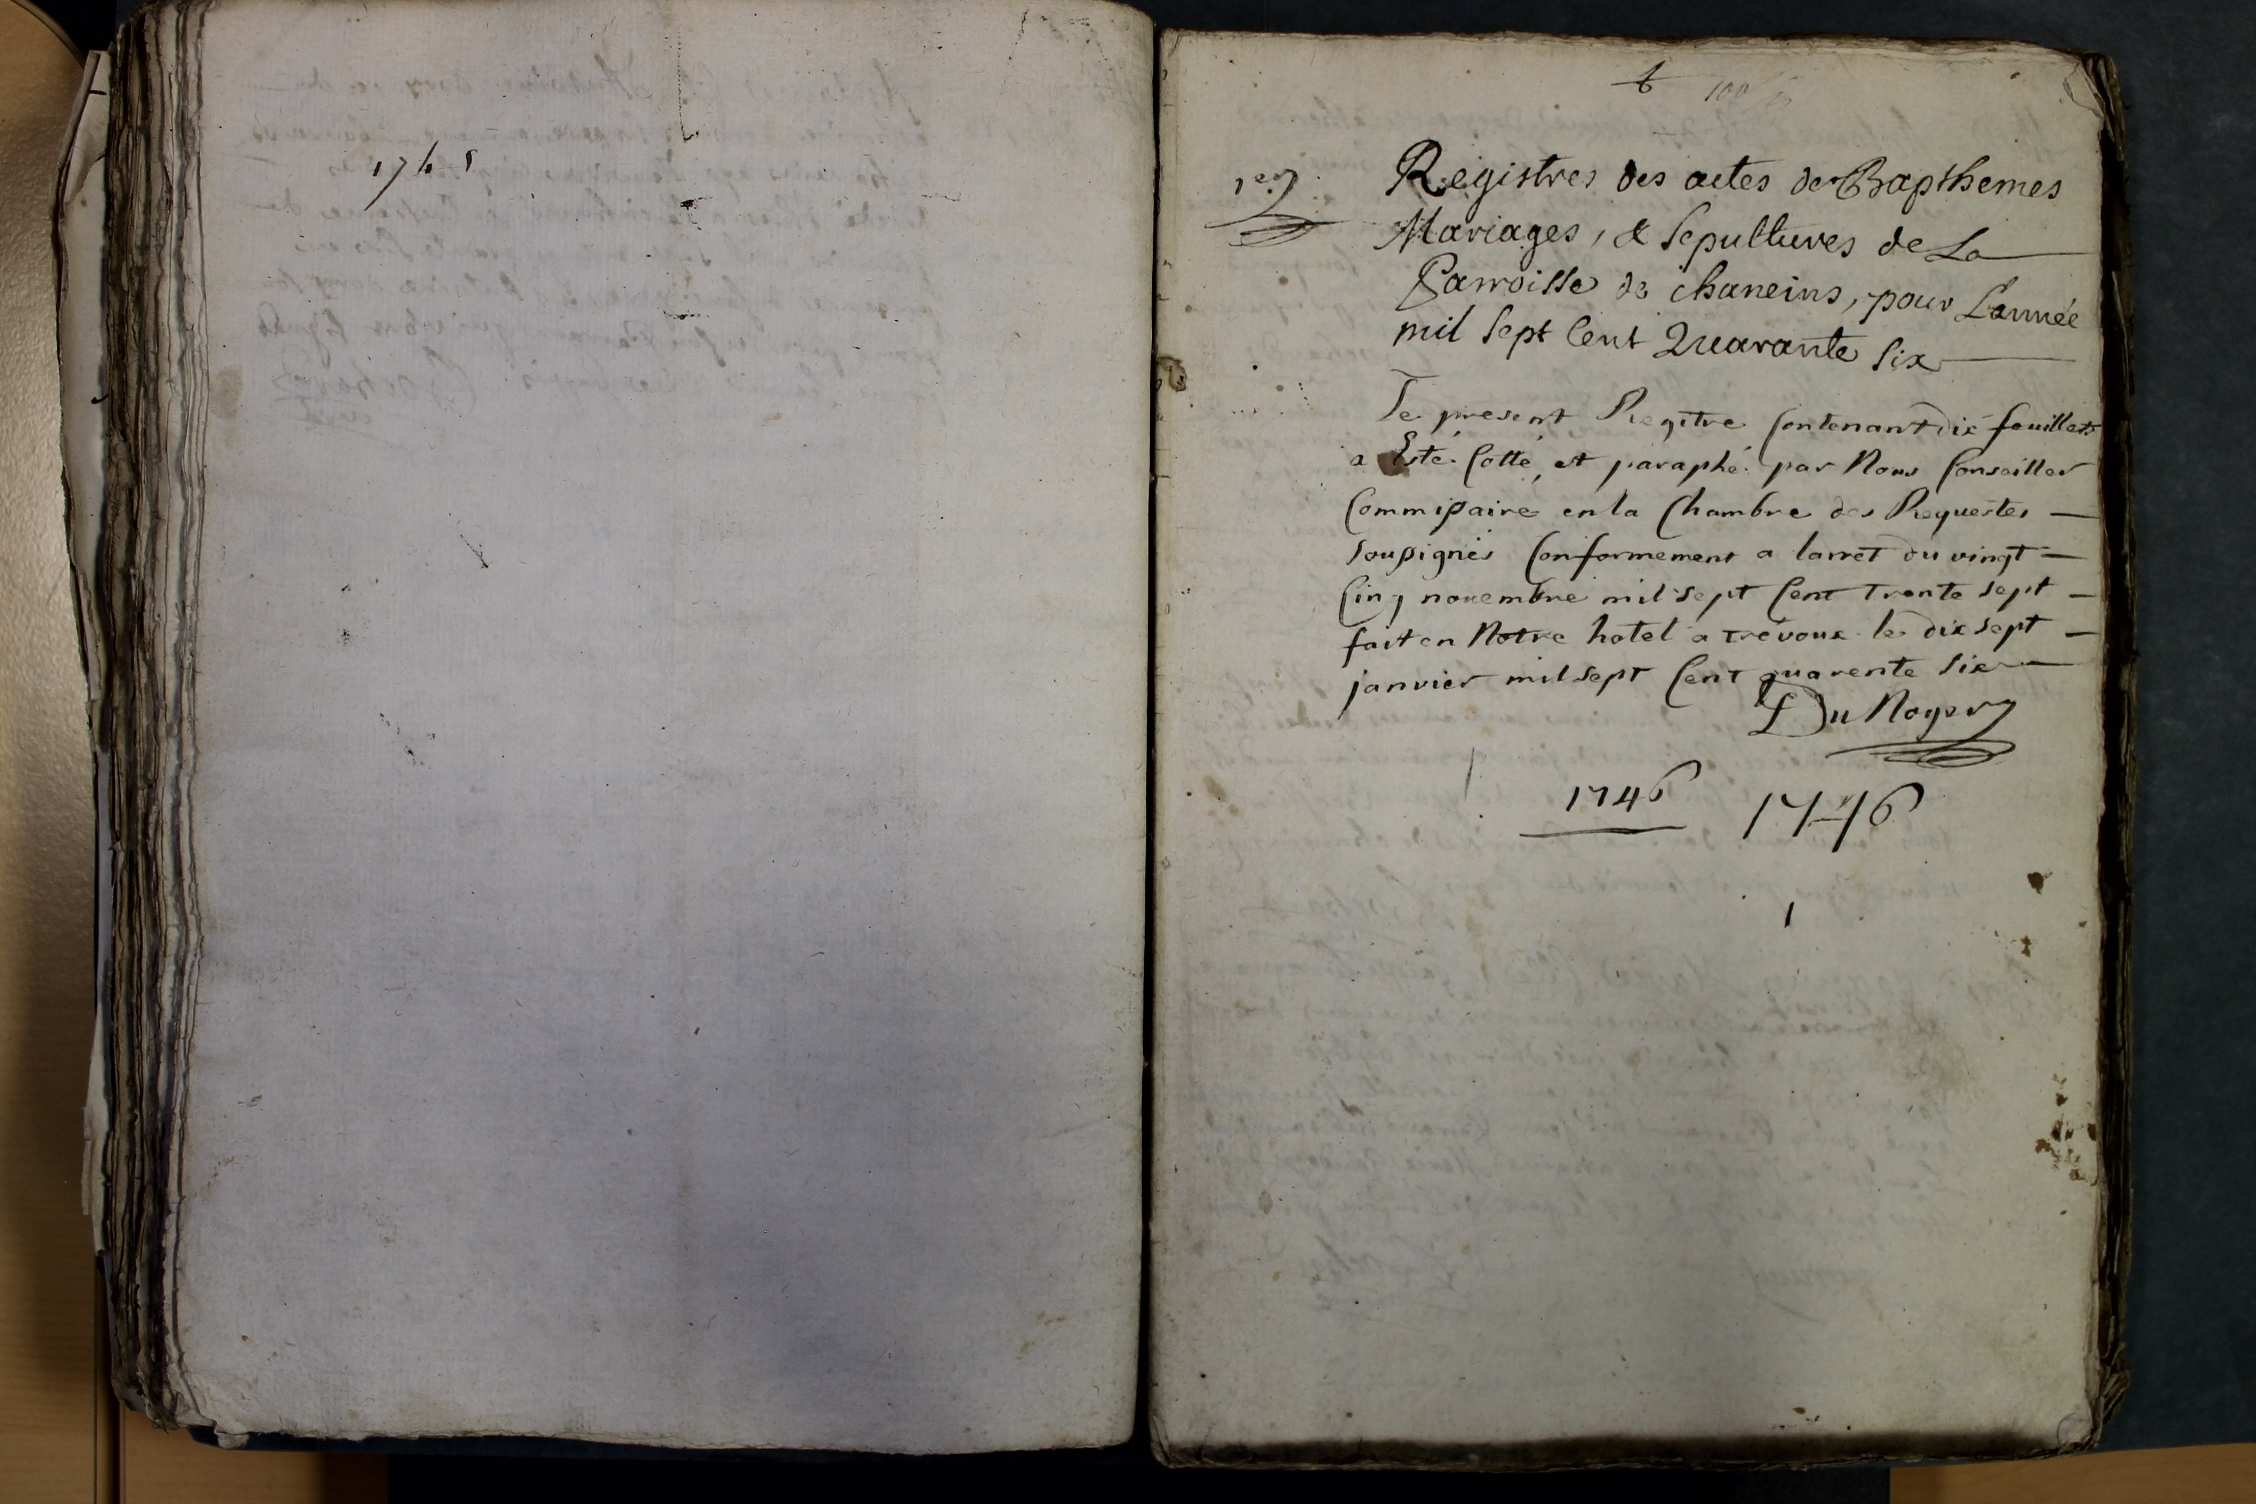 1745
6
1er
Registres des actes de Bapthemes
Mariages, & sepultures de La
Parroisse de chaneins, pour L'année
mil sept Cent Quarante six
Le present Regître Contenant dix feuillets
a Esté Cotté, et paraphé par Nous Conseiller
Commissaire en la Chambre des Requestes
soussignés Conformement a larret du vingt
Cinq novembre mil sept Cent Trente sept
fait en Notre hotel a Trévoux le dix sept
janvier mil sept Cent quarente six
Du Noyer
1746 1746
1